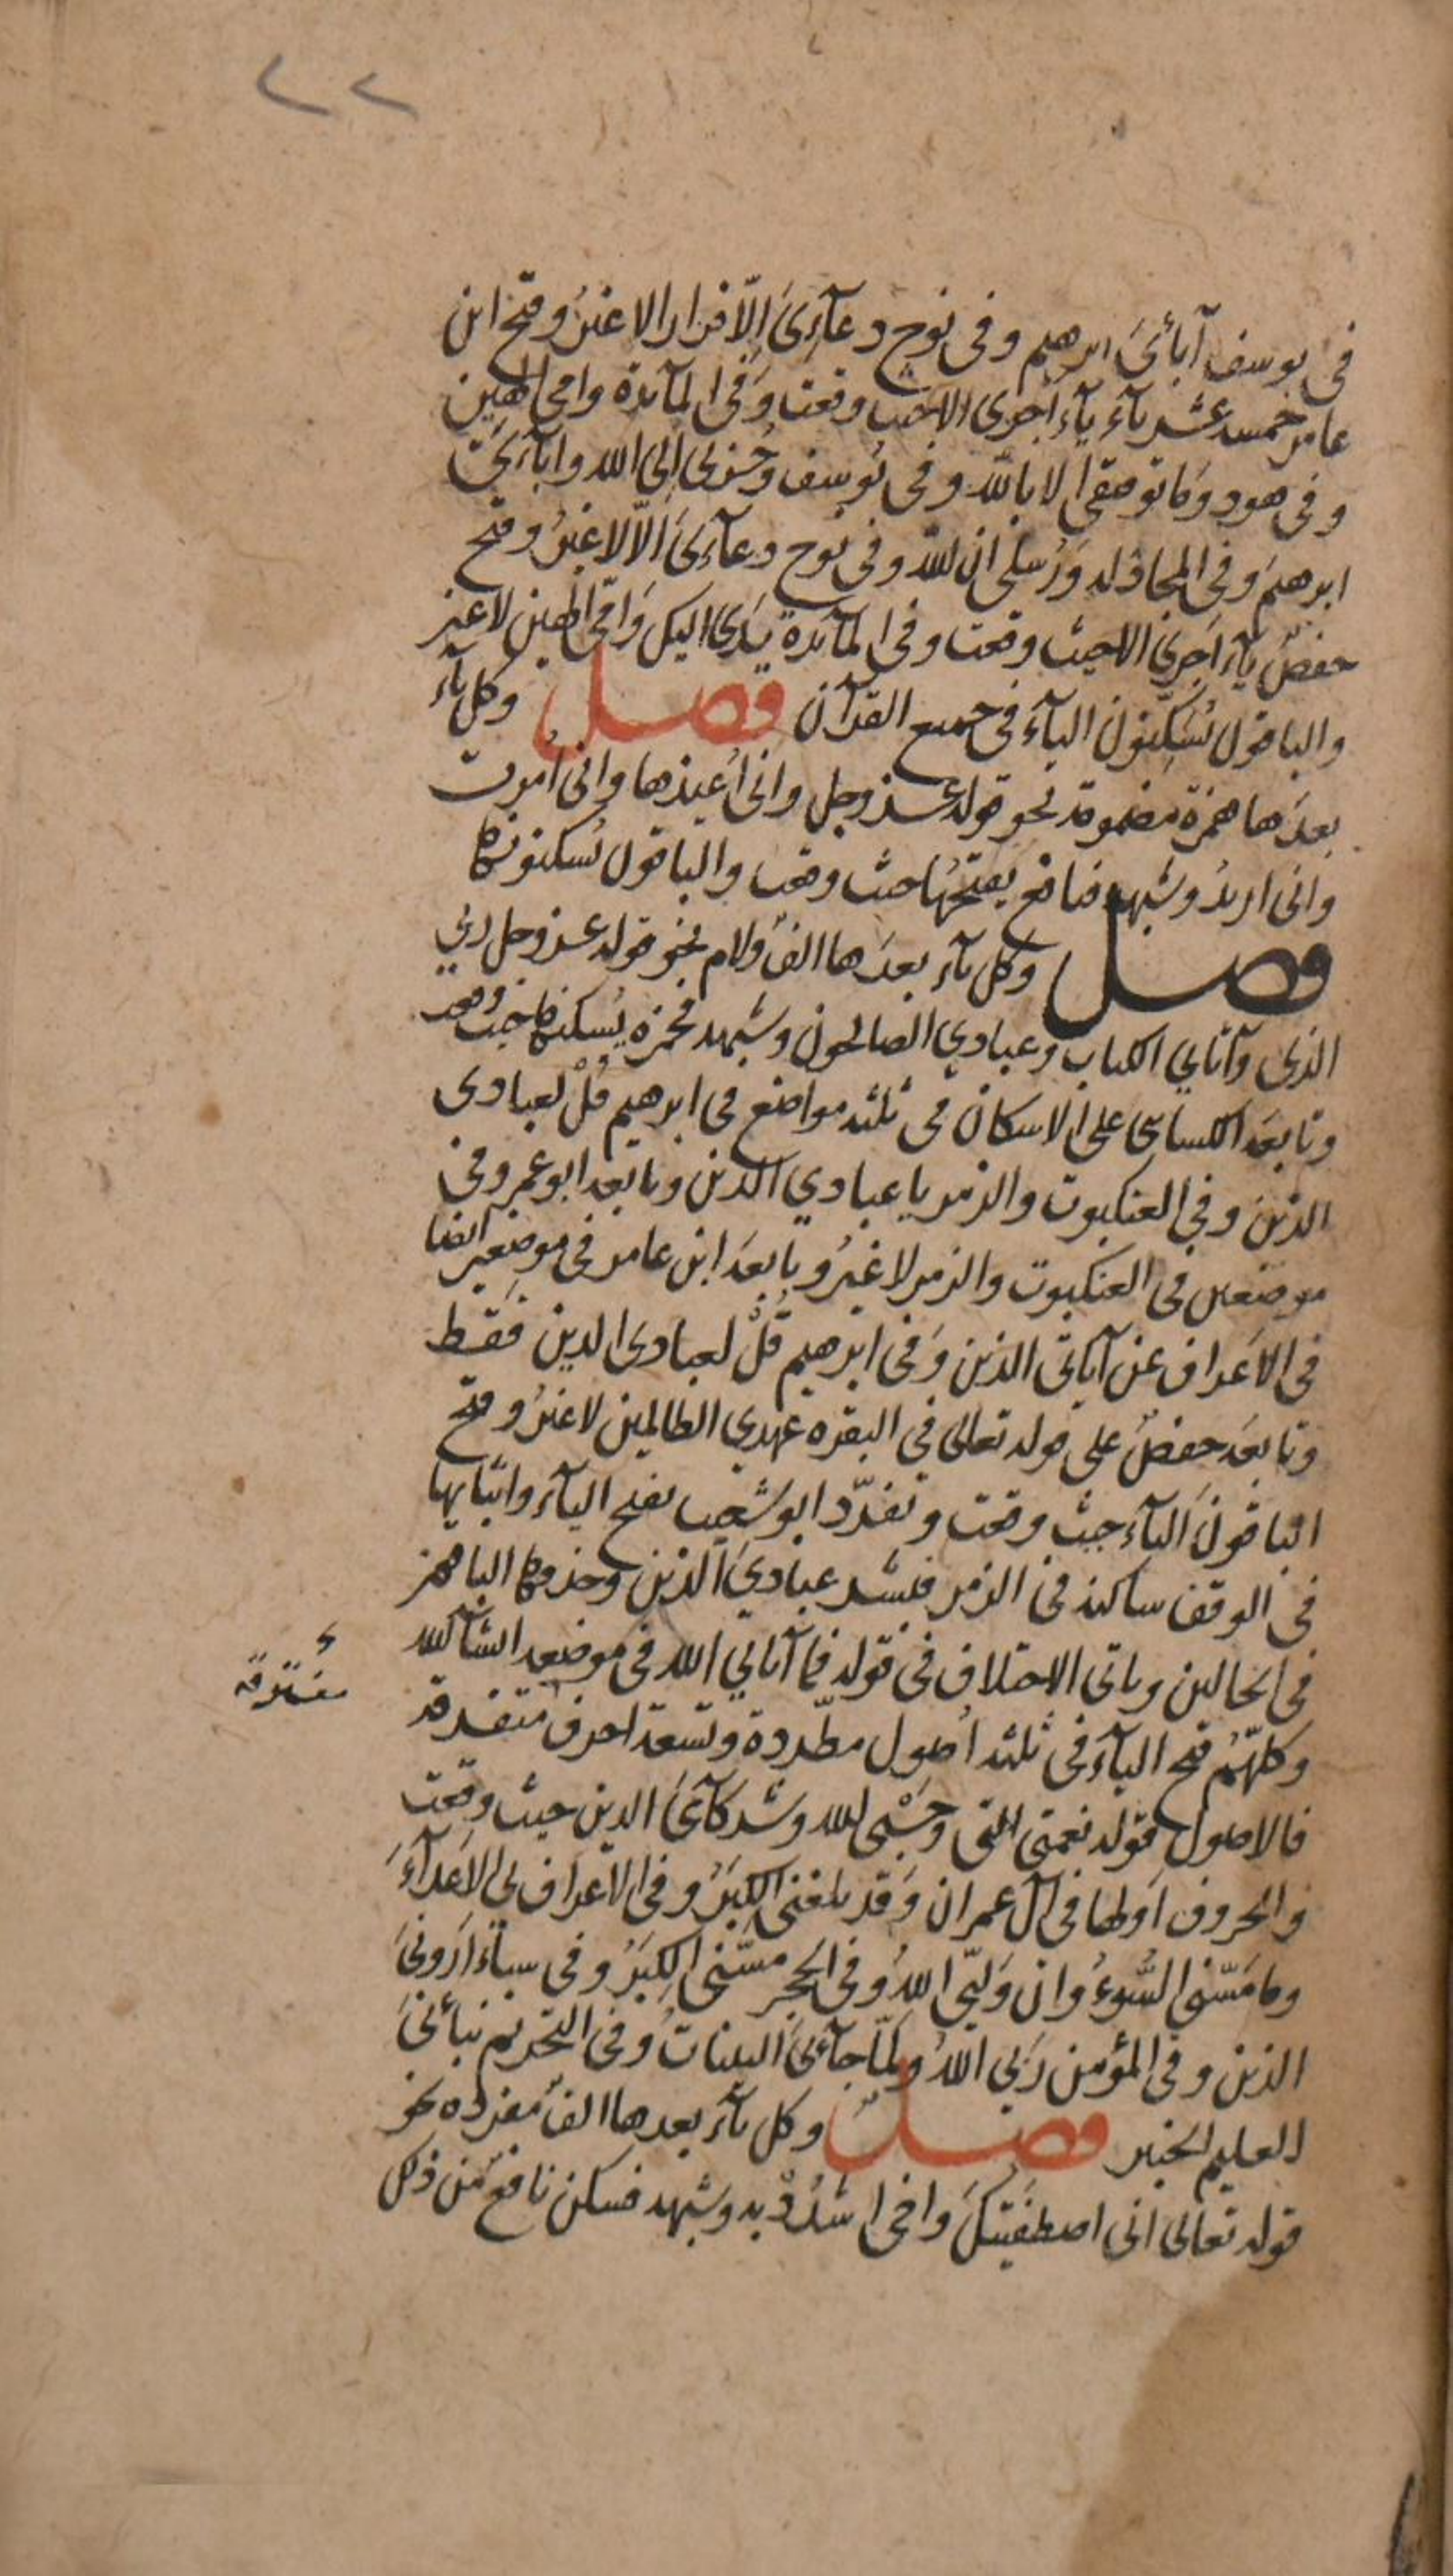 ٢٢
في يوسف آبائيَ ابرهيم وفي نوح دعآءِيَ اِلّا فرارا لا غيرُ وفتح ابن
عامر خمسة عشر يآء يآء اجرى الا حيث وقعت وَفي المآئدة وامي الهين
وفي هود وَما توفيقي الا بالله وفي يُوسف وَحُزني اِلى الله وابآءيَ
ابرهيمَ وفي المجادله وَرُسلي ان الله وفي نوح دعآءيَ اَلّا لا غيرُ وفتح
حفصٌ يآءَ اَجريَ الا حيث وقعت وفي المآئدة يَدِيَ اليك وَاميَ الهين لا غير
والباقون يُسَكّنون اليآءَ في جميع القرآن فصل وكل يآء
بعدَها همزة مضمومة نحو قوله عز وجل وانى اُعيذها وانى اُمرت
وانى اريدُ وشبهه فنافع يفتحُها حيث وقعت والباقون يُسكنونها
فصل وكل يآء بعدَها الفٌ ولام نحو قوله عز وجل ربي
الذى وآتاني الكتاب وعبادي الصالحون وشبهه فحمزه يُسكنها حيث وقعت
وتابعَه الكسائى على الاسكان في ثلثه مواضع في ابرهيم قُلْ لعبادى
الذين وفي العنكبوت والزمر يا عبادي الذين وتابعه ابو عمرو في
موضعين في العنكبوت والزمر لا غيرُ وتابعَه ابن عامر في موضعين ايضا
في الاعراف عن آياتي الذين وَفي ابرهيم قُلْ لعبادى الذين فقط
وتابعَه حفصٌ على قوله تعالى في البقره عهدي الظالمين لا غيرُ وفتح
الباقونَ اليآءَ حيث وقعت وتفرّد ابو شعيب بفتح اليآء واثباتها
في الوقف ساكنه في الزمر فبشر عبادِيَ الذين وحذفها الباقون
في الحالين وياتى الاختلاف في قوله فما آتاني الله في موضعه انشآ الله
وكلّهُم فتح اليآءَ في ثلثه اُصول مطّردة وتسعة احرف متفرقة
مفترقة
فالاصول قوله نعمتى التي وَحَسْبى الله وشركآءيَ الذين حيث وقعت
والحروف اولها في آل عمران وَقد بلغني الكِبَرُ وفي الاعراف بي الاَعدآءَ
وما مَسّني السُّوءُ وان وَليّي اللهُ وفي الحجر مسَّني الكِبَرُ وفي سبآء اَرُونيَ
الذين وفي المؤمن رَبي اللهُ ولمّا جآءنيَ البيناتُ وفي التحريم نبأنيَ
العليم الخبير فصل وكل يآء بعدها الفٌ مفرده نحو
قوله تعالى اني اصطفيتكَ واخى اشدُدْ به وشبهه فسكن نافع من ذلك